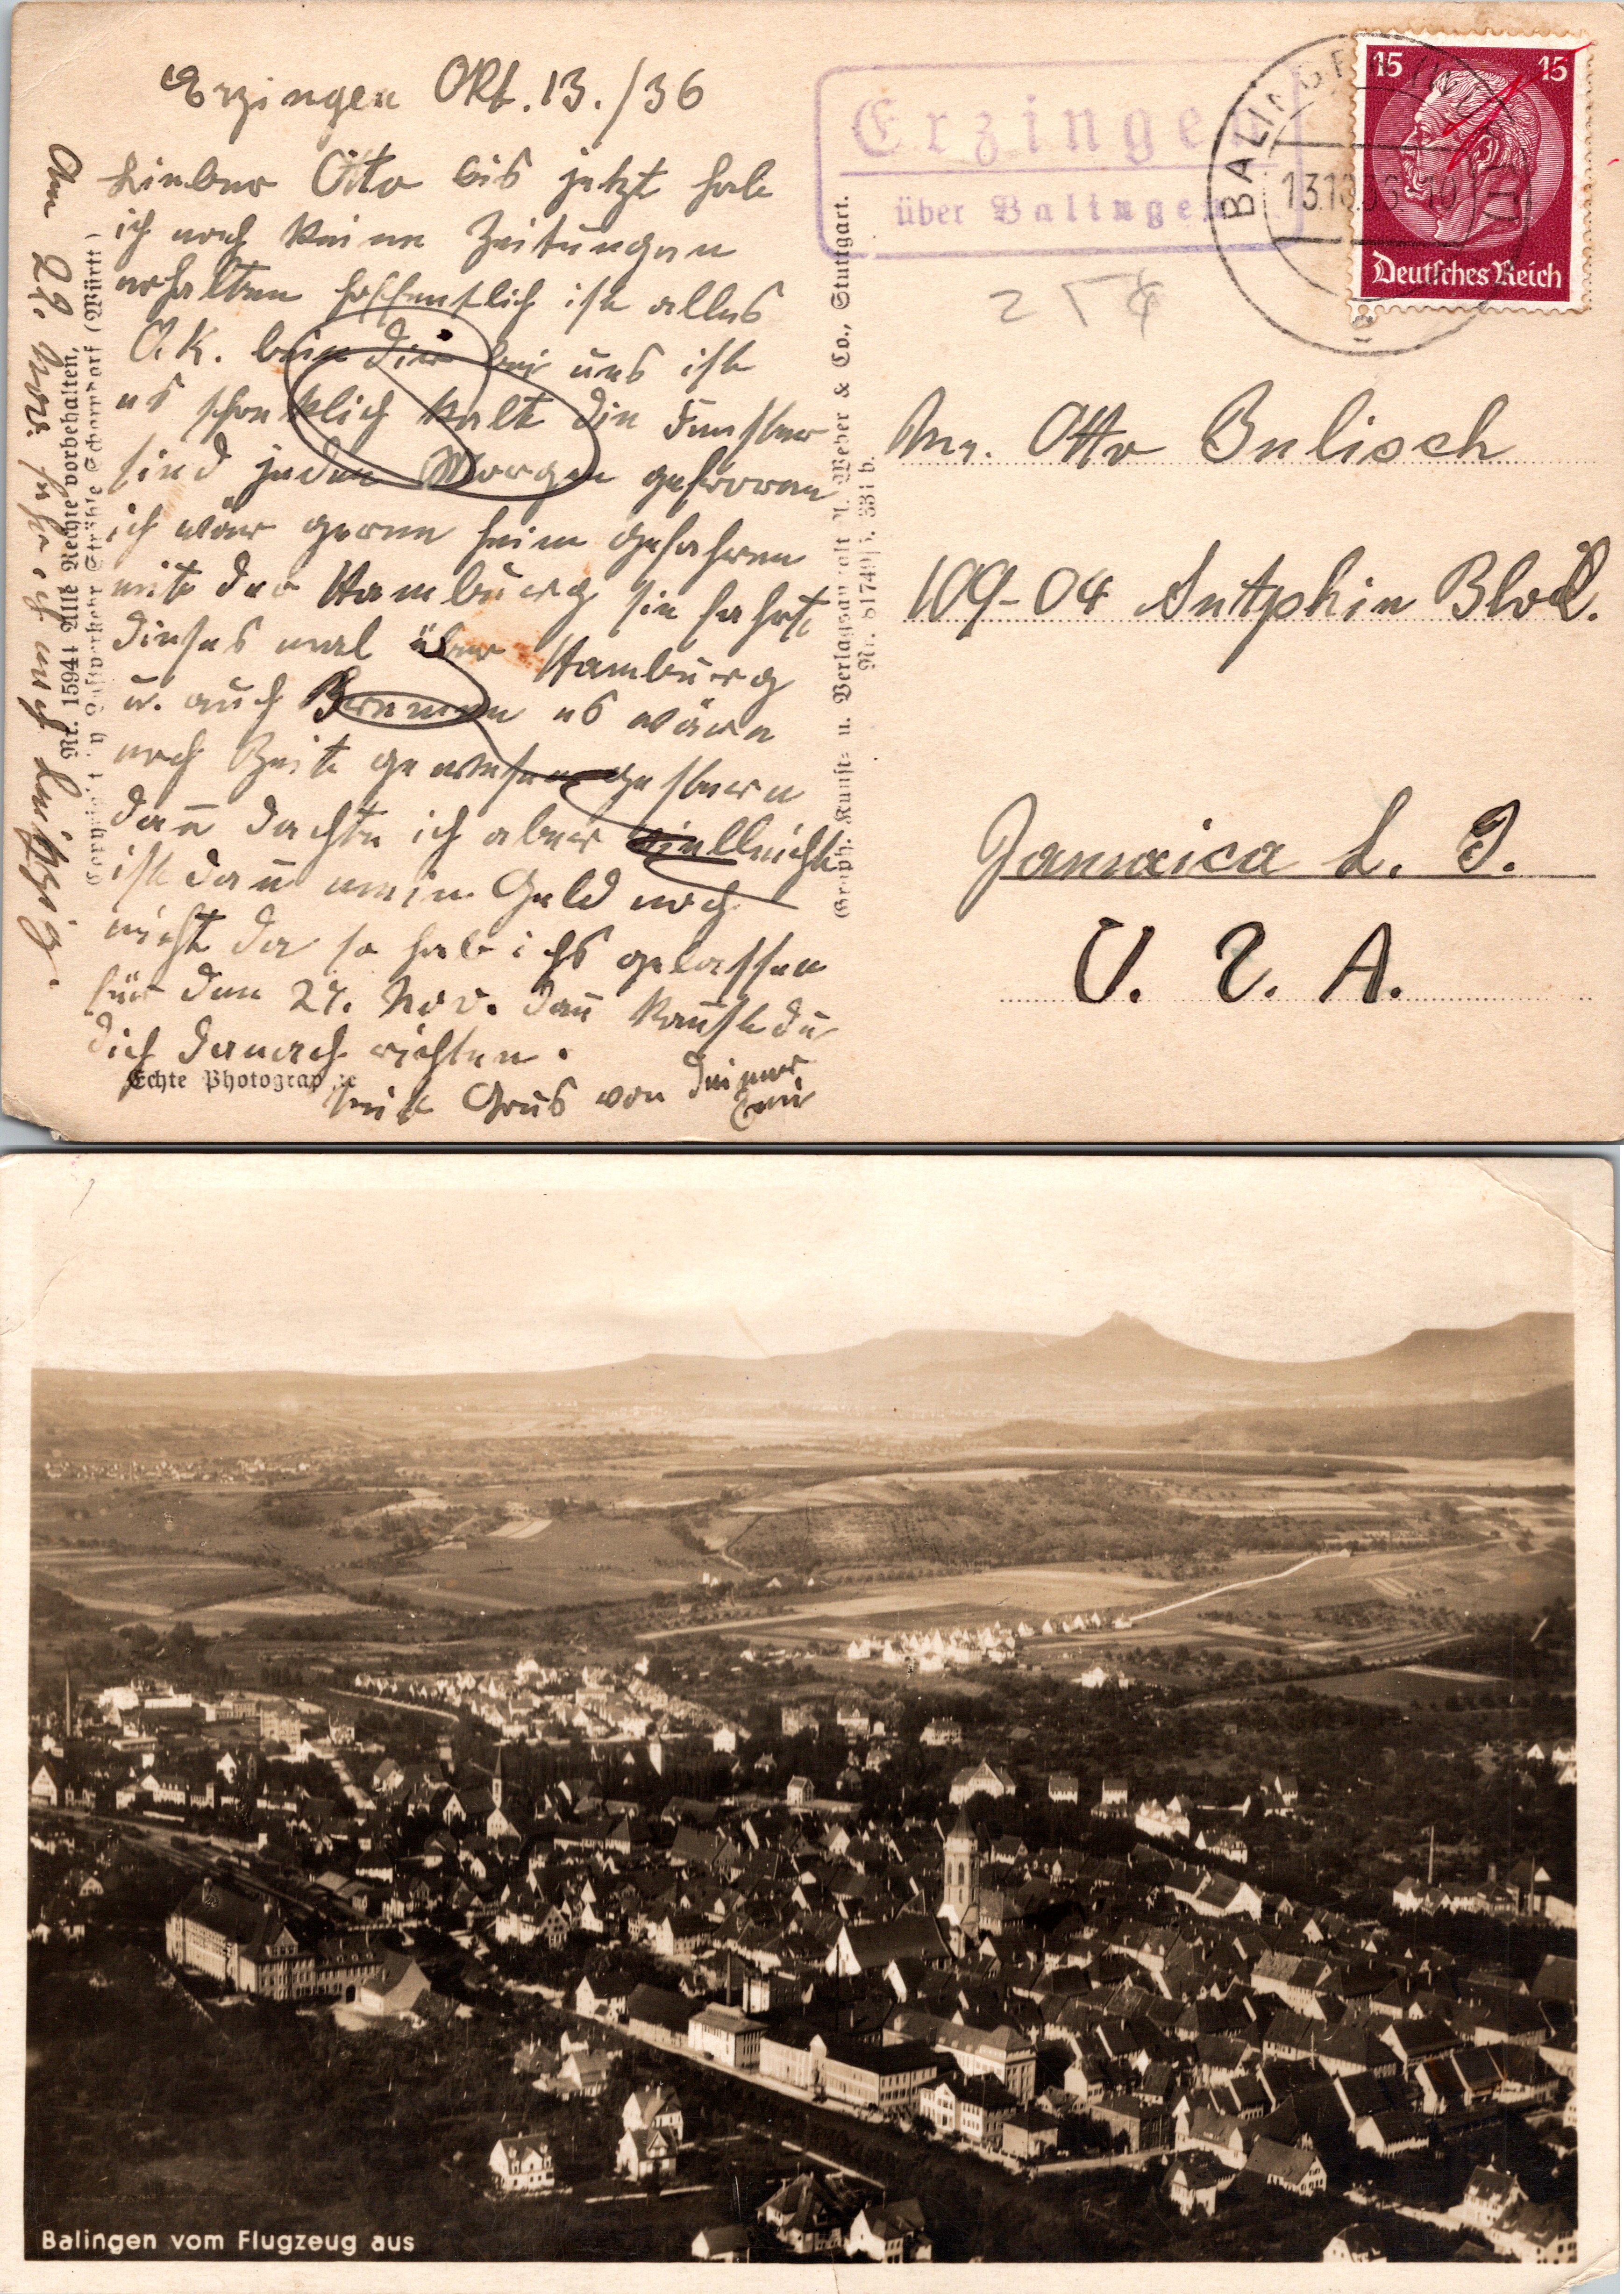 Erzingen Okt. 13./36
Lieber Otto bis jetzt hab
ich noch keine Zeitungen
erhalten hoffentlich ist alles
O.K. bein dir bei uns ist
es schreklich kalt die Fenster
sind jeden Morgen gefroren
ich wär gerne heim gefahren
mit der Hamburg sie fahrt
dieses mal über Hamburg
u. auch Bremen es wäre
noch Zeit gewesen gestern
dan̄ dachte ich aber vielleicht
ist dan̄ mein Geld noch
nicht da so hab ichs gelassen
für den 27. Nov. dan̄ kan̄st du
dich danach richten.
mit Grus von deiner
Am Nov. fahr ich nach Leipzig.
Nr. 15941 Alle Rechte vorbehalten,
Copyright by Luftverkehr Strähle Schorndorf (Württ.)
Echte Photographie
Graph. Kunst- u. Verlagsanstalt A. Weber & Co., Stuttgart.
Erzingen
über Balingen
BALINGEN (WÜRTT)
13.10.36.-10
15 15
Deutsches Reich
Mr. Otto Belisch
109-04 Sutphin Blvd.
Jamaica L. I.
U. S. A.
Balingen vom Flugzeug aus